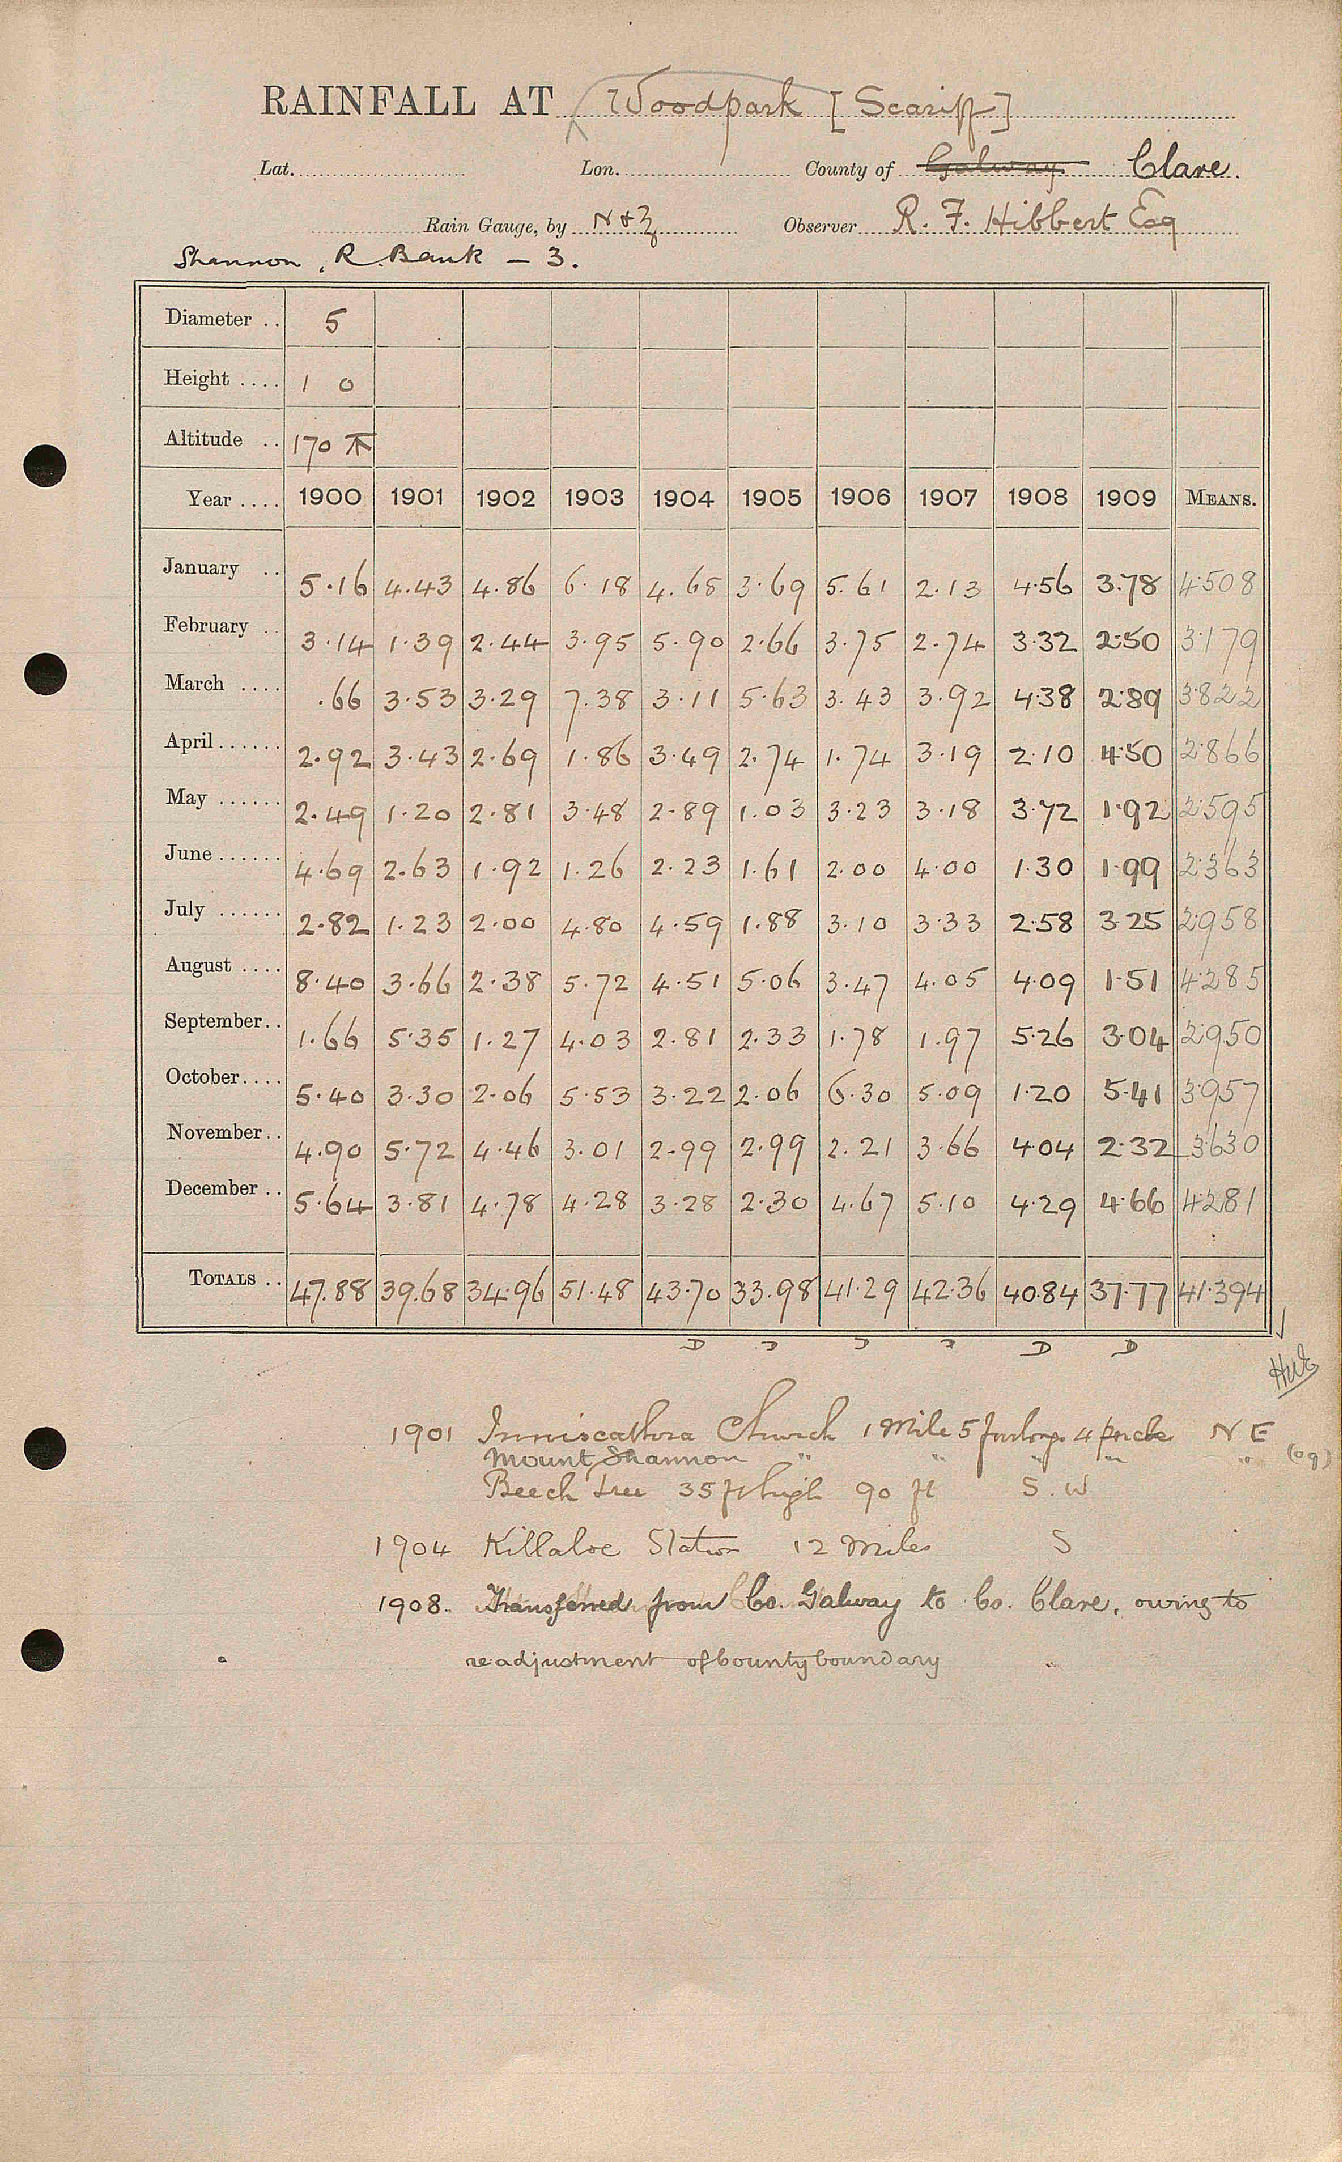 RAINFALL AT Woodpark [Scariff]
Lat. Lon. County of Galway Clare.
Rain Gauge, by N & Z Observer R. F. Hibbert Esq
Shannon, R. Bank – 3.
Diameter .. 5
Height .... 1 0
Altitude .. 170
Year .... 1900 1901 1902 1903 1904 1905 1906 1907 1908 1909 MEANS.
January .. 5.16 4.43 4.86 6.18 4.65 3.69 5.61 2.13 4.56 3.78 4.508
February .. 3.14 1.39 2.44 3.95 5.90 2.66 3.75 2.74 3.32 2.50 3.179
March .... .66 3.53 3.29 7.38 3.11 5.63 3.43 3.92 4.38 2.89 3.822
April ...... 2.92 3.43 2.69 1.86 3.49 2.74 1.74 3.19 2.10 4.50 2.866
May ...... 2.49 1.20 2.81 3.48 2.89 1.03 3.23 3.18 3.72 1.92 2.595
June ...... 4.69 2.63 1.92 1.26 2.23 1.61 2.00 4.00 1.30 1.99 2.363
July ...... 2.82 1.23 2.00 4.80 4.59 1.88 3.10 3.33 2.58 3.25 2.958
August .... 8.40 3.66 2.38 5.72 4.51 5.06 3.47 4.05 4.09 1.51 4.285
September .. 1.66 5.35 1.27 4.03 2.81 2.33 1.78 1.97 5.26 3.04 2.950
October .... 5.40 3.30 2.06 5.53 3.22 2.06 6.30 5.09 1.20 5.41 3.957
November .. 4.90 5.72 4.46 3.01 2.99 2.99 2.21 3.66 4.04 2.32 3.630
December .. 5.64 3.81 4.78 4.28 3.28 2.30 4.67 5.10 4.29 4.66 4.281
TOTALS .. 47.88 39.68 34.96 51.48 43.70 33.98 41.29 42.36 40.84 37.77 41.394
D D D D D D
1901 Inniscalthra Church 1 Mile 5 furlongs 4 perches N E
Mount Shannon " " " " " (09)
Beech tree 35 ft high 90 ft S.W
1904 Killaloe Station 12 Miles S
1908. Transferred from Co. Galway to Co. Clare, owing to
readjustment of County boundary